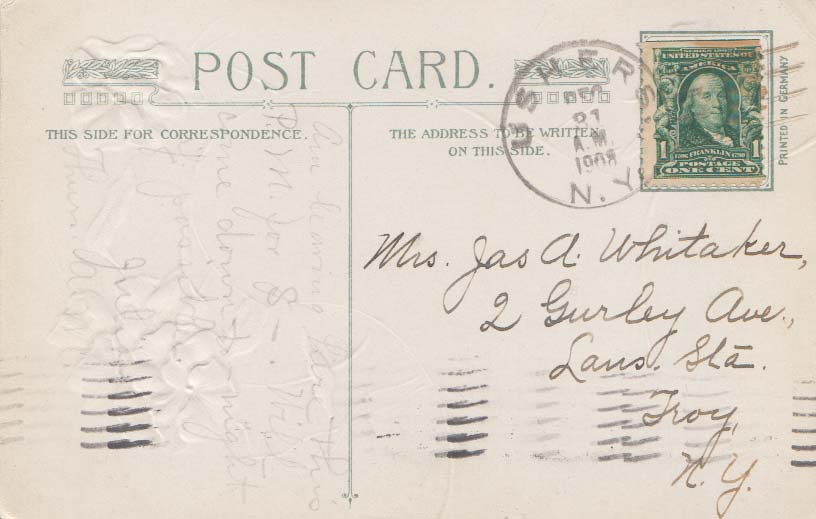 POST CARD.
THIS SIDE FOR CORRESPONDENCE.
THE ADDRESS TO BE WRITTEN
ON THIS SIDE.
USHERS
DEC
21
A.M.
1908
N.Y.
SERIES 1902
UNITED STATES OF
AMERICA
1 1
FRANKLIN
POSTAGE
ONE CENT
PRINTED IN GERMANY
Mrs. Jas A. Whitaker,
2 Gurley Ave.,
Lans. Sta.
Troy,
N.Y.
Am leaving here this
P.M. for
come down to night
if possible